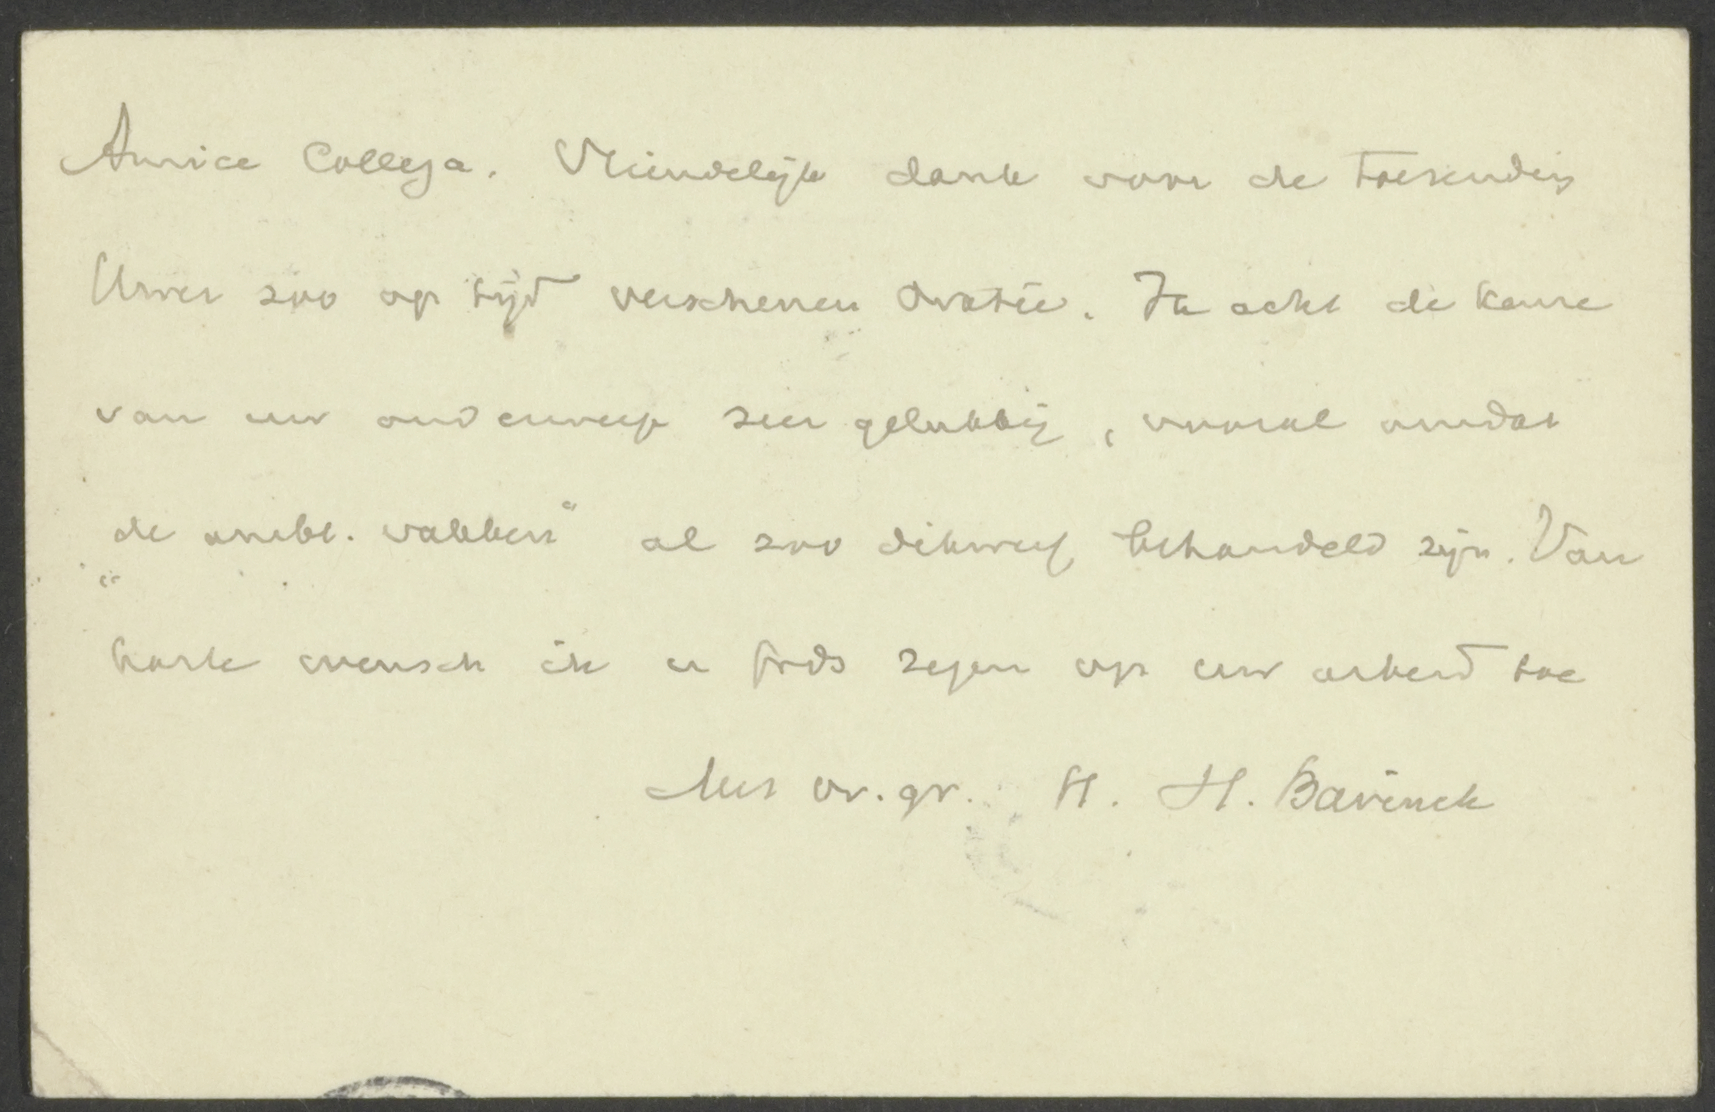 Amice Collega. Vriendelijk dank voor de toezending
Uwer zoo op tijd verschenen oratie. Ik acht de keuze
van uw onderwerp zeer gelukkig, vooral omdat
de ambt. vakken" al zoo dikwerf behandeld zijn. Van
harte wensch ik u Gods zegen op uw arbeid toe
Met vr. gr. tt. H. Bavinck